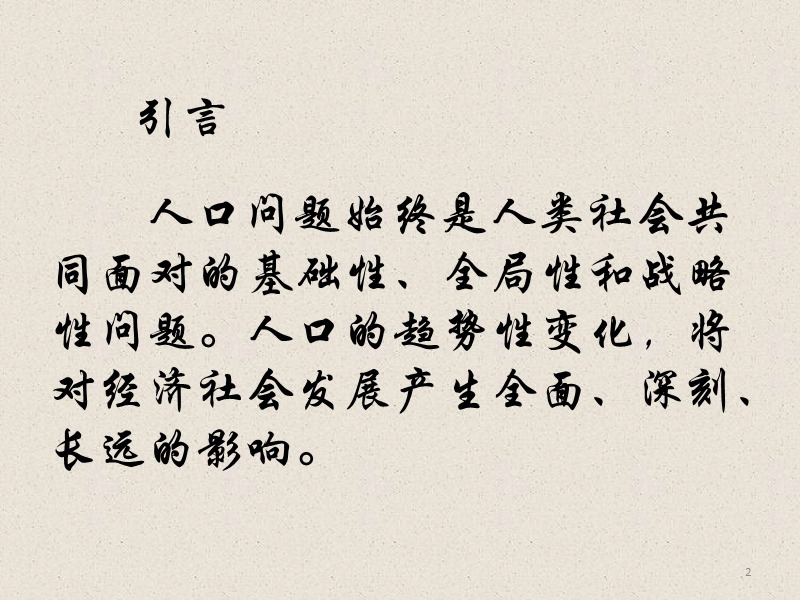 引言
人口问题始终是人类社会共
同面对的基础性、全局性和战略
性问题。人口的趋势性变化，将
对经济社会发展产生全面、深刻、
长远的影响。
2